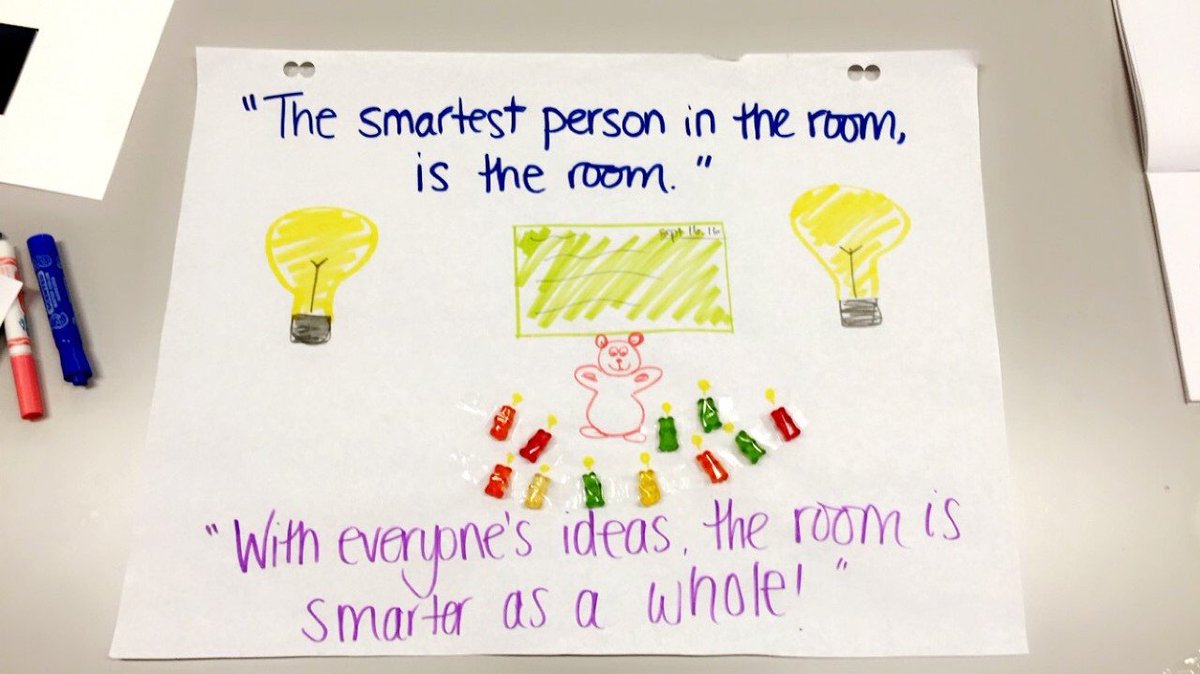 "The smartest person in the room,
is the room."
Sept 16, 16
"With everyone's ideas, the room is
smarter as a whole!"